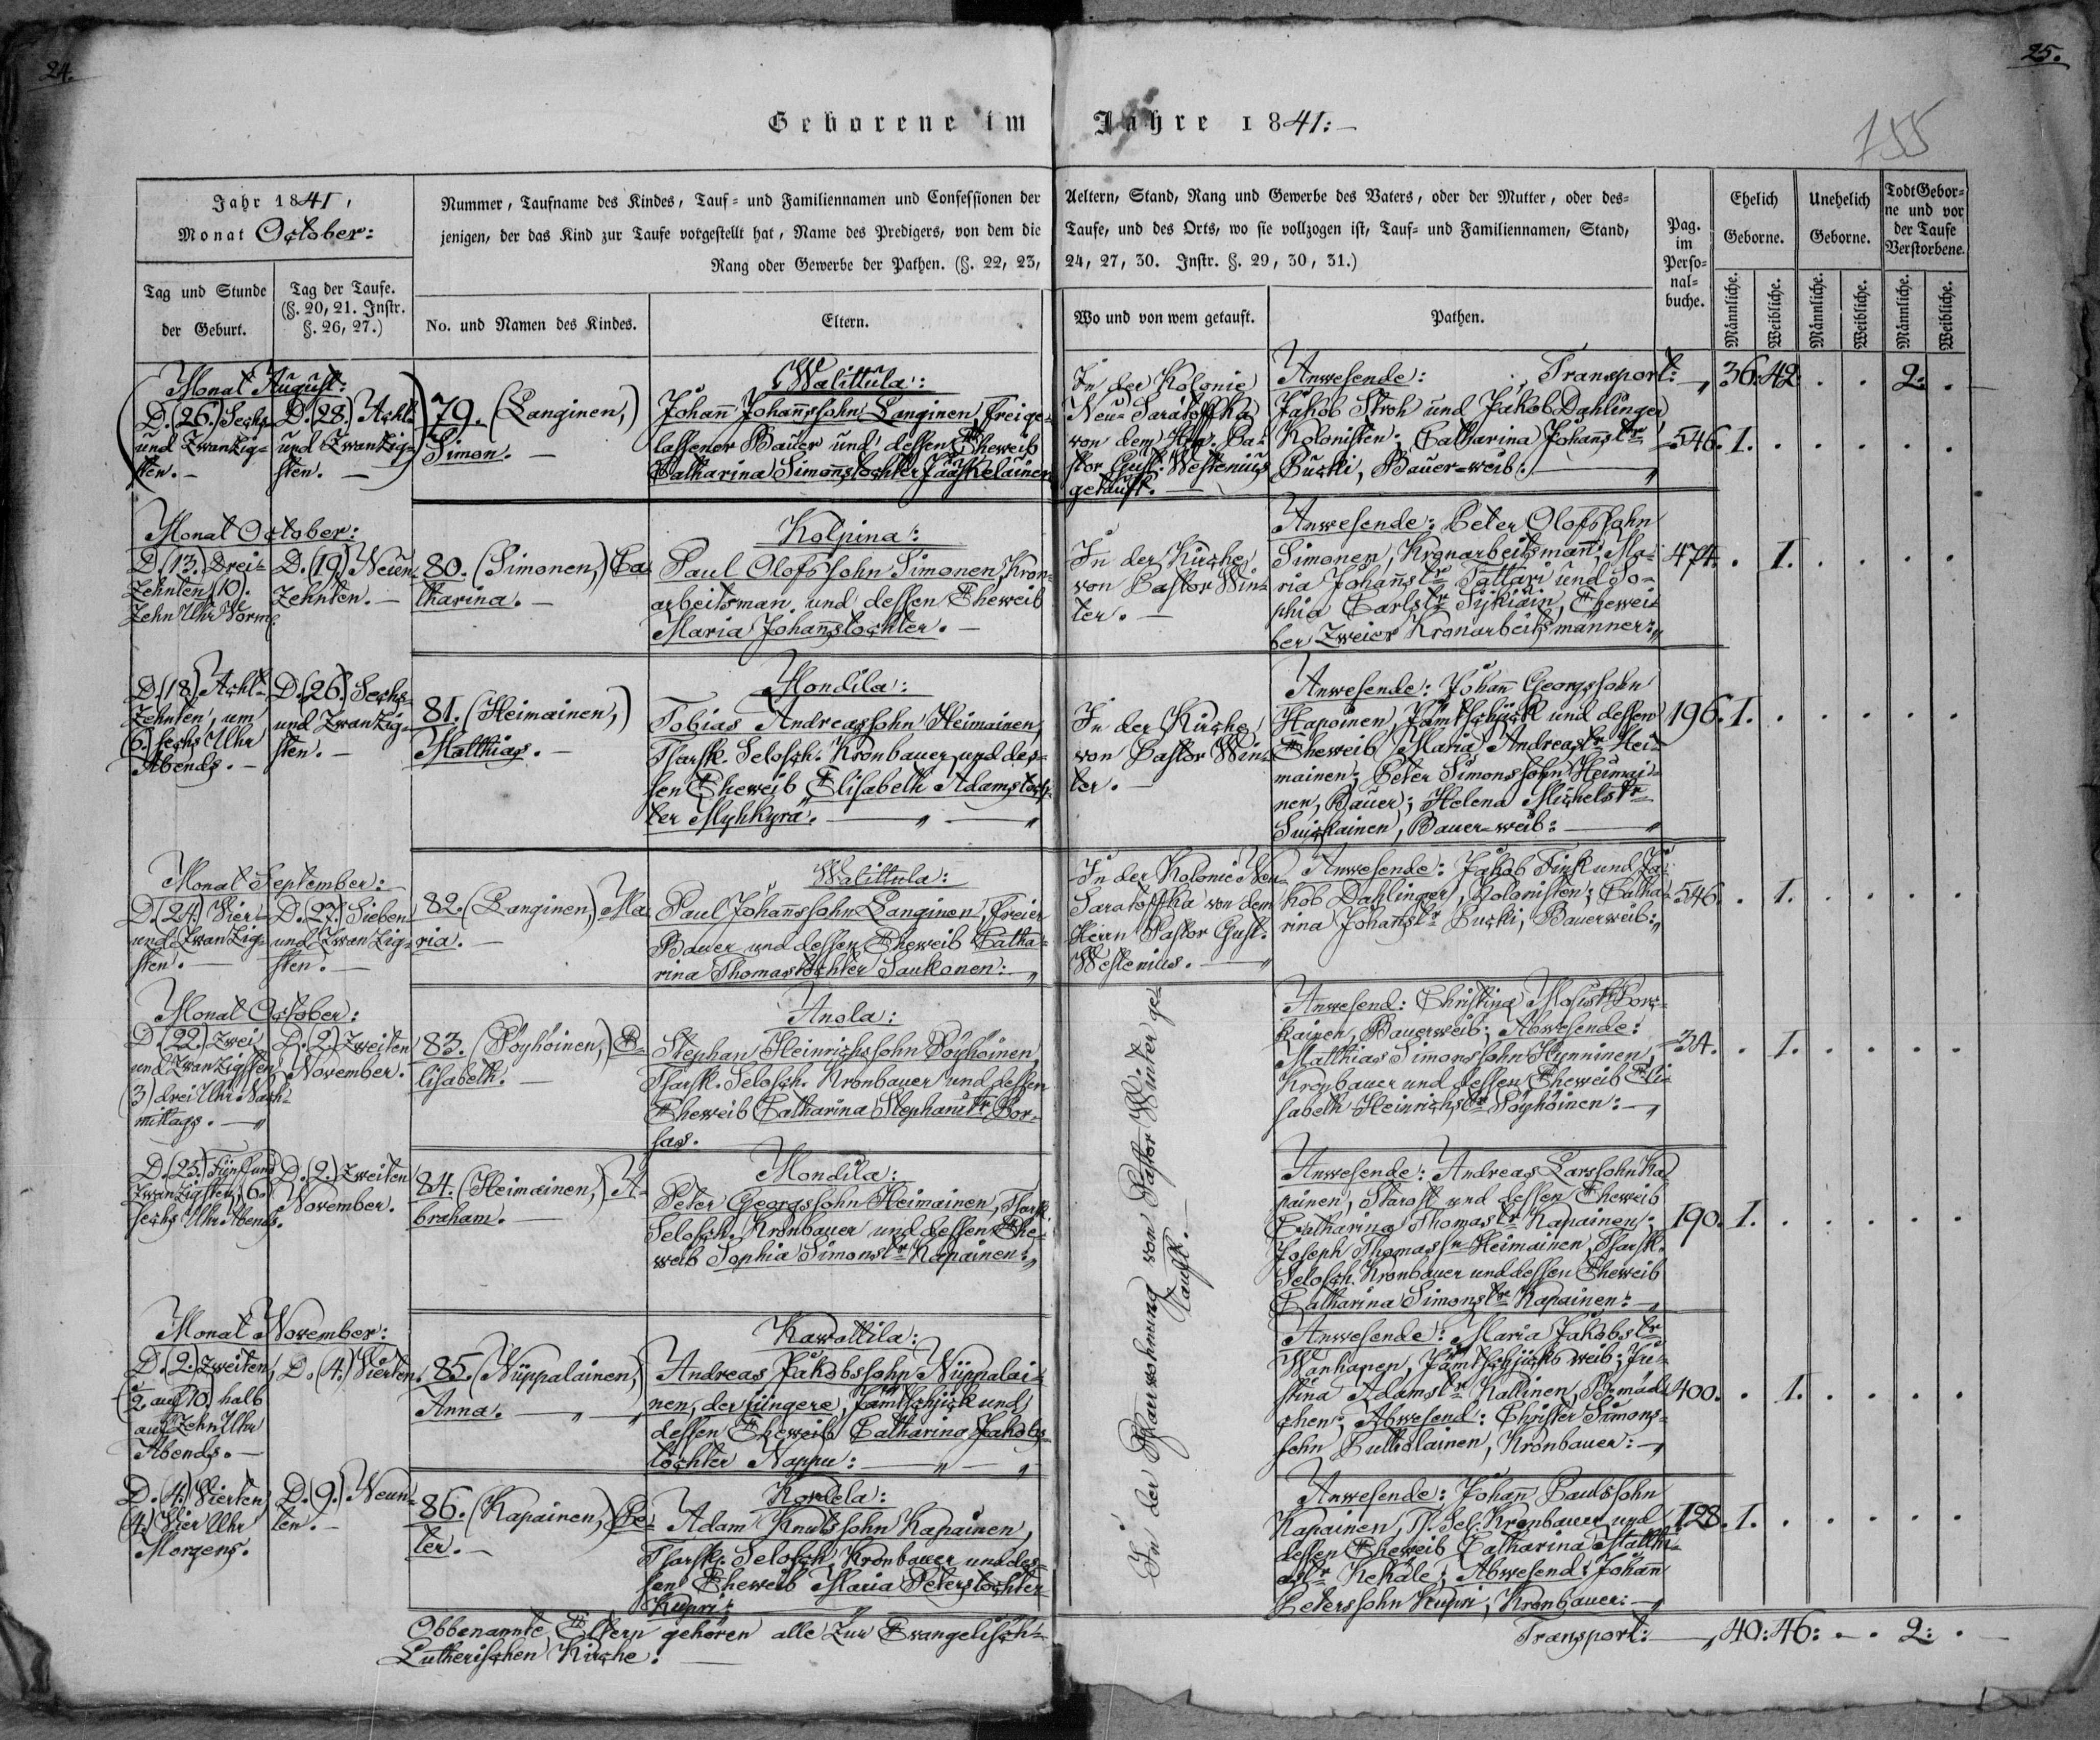 24.
25.
Geborene im Jahre 1841:
155
Jahr 1841,
Monat October:
Nummer, Taufname des Kindes, Tauf- und Familiennamen und Confessionen der
jenigen, der das Kind zur Taufe vorgestellt hat, Name des Predigers, von dem die
Rang oder Gewerbe der Pathen. (§. 22, 23,
Aeltern, Stand, Rang und Gewerbe des Vaters, oder der Mutter, oder des-
Taufe, und des Orts, wo sie vollzogen ist, Tauf- und Familiennamen, Stand,
24, 27, 30. Instr. §. 29, 30, 31.)
Pag.
im
Perso-
nal-
buche.
Ehelich
Geborne.
Unehelich
Geborne.
TodtGebor-
ne und vor
der Taufe
Verstorbene.
Tag und Stunde
der Geburt.
Tag der Taufe.
(§. 20, 21. Instr.
§. 26, 27.)
No. und Namen des Kindes.
Eltern.
Wo und von wem getauft.
Pathen.
Männliche.
Weibliche.
Männliche.
Weibliche.
Männliche.
Weibliche.
Monat August:
D. (26.) Sechs
und Zwanzig-
sten. -
D. (28.) Acht
und Zwanzig-
sten. -
79. (Langinen,)
Simon. -
Walittula:
Johann Johannssohn Langinen, freige-
lassener Bauer und dessen Eheweib
Catharina Simonstochter Jääskeläinen
In der Kolonie
Neu-Saratoffka
von dem Hrn. Pa-
stor Gust. Westenius
getauft. -
Anwesende: Transport: 36. 42. . . 2. .
Jakob Stroh und Jakob Dahlinger
Kolonisten; Catharina Johannstr
Pucki, Bauer-weib:
546. 1. . . . . .
Monat October:
D. (13.) Drei-
zehnten, (10).
Zehn Uhr Vorm.
D. (19.) Neun-
zehnten. -
80. (Simonen,) Ca-
tharina. -
Kolpina:
Paul Olofssohn Simonen, Kron-
arbeitsman und dessen Eheweib
Maria Johannstochter. -
In der Kirche
von Pastor Win-
ter. -
Anwesende: Peter Olofssohn
Simonen, Kronarbeitsmann; Ma-
ria Johannstr Tattari und So-
phia Carlstr Sykiäin, Ehewei-
ber zweier Kronarbeitsmänner:
474. . 1. . . . .
D. (18.) Acht-
zehnten, um
(6.) sechs Uhr
Abends. -
D. (26.) Sechs
und Zwanzig-
sten. -
81. (Heimainen,)
Matthias. -
Mondila:
Tobias Andreassohn Heimainen,
Tsarsk. Selosch. Kronbauer und des-
sen Eheweib Elisabeth Adamstoch-
ter Myhkyrä.
In der Kirche
von Pastor Win-
ter. -
Anwesende: Johann Georgssohn
Hapoinen, Jämtschjick und dessen
Eheweib Maria Andreastr Hei-
mainen; Peter Simonssohn Heimai-
nen, Bauer; Helena Michelstr
Suikkainen, Bauer-weib:
196. 1. . . . . .
Monat September:
D. (24.) Vier-
und Zwanzig-
sten. -
D. (27.) Sieben
und Zwanzig-
sten. -
82. (Langinen,) Ma-
ria. -
Walittula:
Paul Johannssohn Langinen, freier
Bauer und dessen Eheweib Catha-
rina Thomastochter Saukonen:
In der Kolonie Neu-
Saratoffka von dem
Herrn Pastor Gust.
Westenius. -
Anwesende: Jakob Fink und Ja-
kob Dahlinger, Kolonisten; Catha-
rina Johannstr Pucki, Bauerweib:
546. . 1. . . . .
Monat October:
D. (22.) Zwei
und Zwanzigsten
(3) drei Uhr Nach-
mittags. -
D. (2.) Zweiten
November.
83. (Pöyhöinen,) E-
lisabeth. -
Anola:
Stephan Heinrichssohn Pöyhöinen,
Tsarsk. Selosch. Kronbauer und dessen
Eheweib Catharina Stephanstr Por-
sas.
In der Pfarrwohnung von Pastor Winter ge-
tauft. -
Anwesend: Christina Mosistr
kainen, Bauerweib; Abwesende:
Matthias Simonssohn Hynninen,
Kronbauer und dessen Eheweib Eli-
sabeth Heinrichstr Pöyhöinen:
34. . 1. . . . .
D. (25.) Fünf und
Zwanzigsten, (6.)
sechs Uhr Abends.
D. (2.) Zweiten
November.
84. (Heimainen,) A-
braham. -
Mondila:
Peter Georgssohn Heimainen, Tsarsk.
Selosch. Kronbauer und dessen Ehe-
weib Sophia Simonstr Kapainen:
Anwesende: Andreas Larssohn Ka-
painen, Starost und dessen Eheweib
Catharina Thomastr Kapainen;
Joseph Thomassn Heimainen, Tsarsk.
Selosch. Kronbauer und dessen Eheweib
Catharina Simonstr Kapainen:
190. 1. . . . . .
Monat November:
D. (2.) Zweiten,
(½ auf 10) halb
auf Zehn Uhr
Abends. -
D. (4.) Vierten.
85. (Nüppalainen,)
Anna.
Kawattila:
Andreas Jakobssohn Nüppalai-
nen, der jüngere, Jämtschjick und
dessen Eheweib Catharina Jakobs-
tochter Nappu:
Anwesende: Maria Jakobstr
Wanhanen, Jämtschjicks weib; Ju-
stina Adamstr Kallinen, B-mäd-
chen; Abwesend: Christer Simons-
sohn Pulkolainen, Kronbauer:
400. . 1. . . . .
D. (4.) Vierten
(4.) Vier Uhr
Morgens.
D. (9.) Neun-
ten. -
86. (Kapainen,) Pe-
ter. -
Kordela:
Adam Knutssohn Kapainen,
Tsarsk. Selosch. Kronbauer und des-
sen Eheweib Maria Peterstochter
Kupri:
Anwesende: Johann Paulssohn
Kapainen, Ts. Sel. Kronbauer und
dessen Eheweib Catharina Matthi-
astr Kekäle; Abwesend: Johann
Peterssohn Kupri, Kronbauer:
128. 1. . . . . .
Obbenannte Eltern gehören alle zur Evangelisch-
Lutherischen Kirche:
Transport: 40: 46: . . 2: .